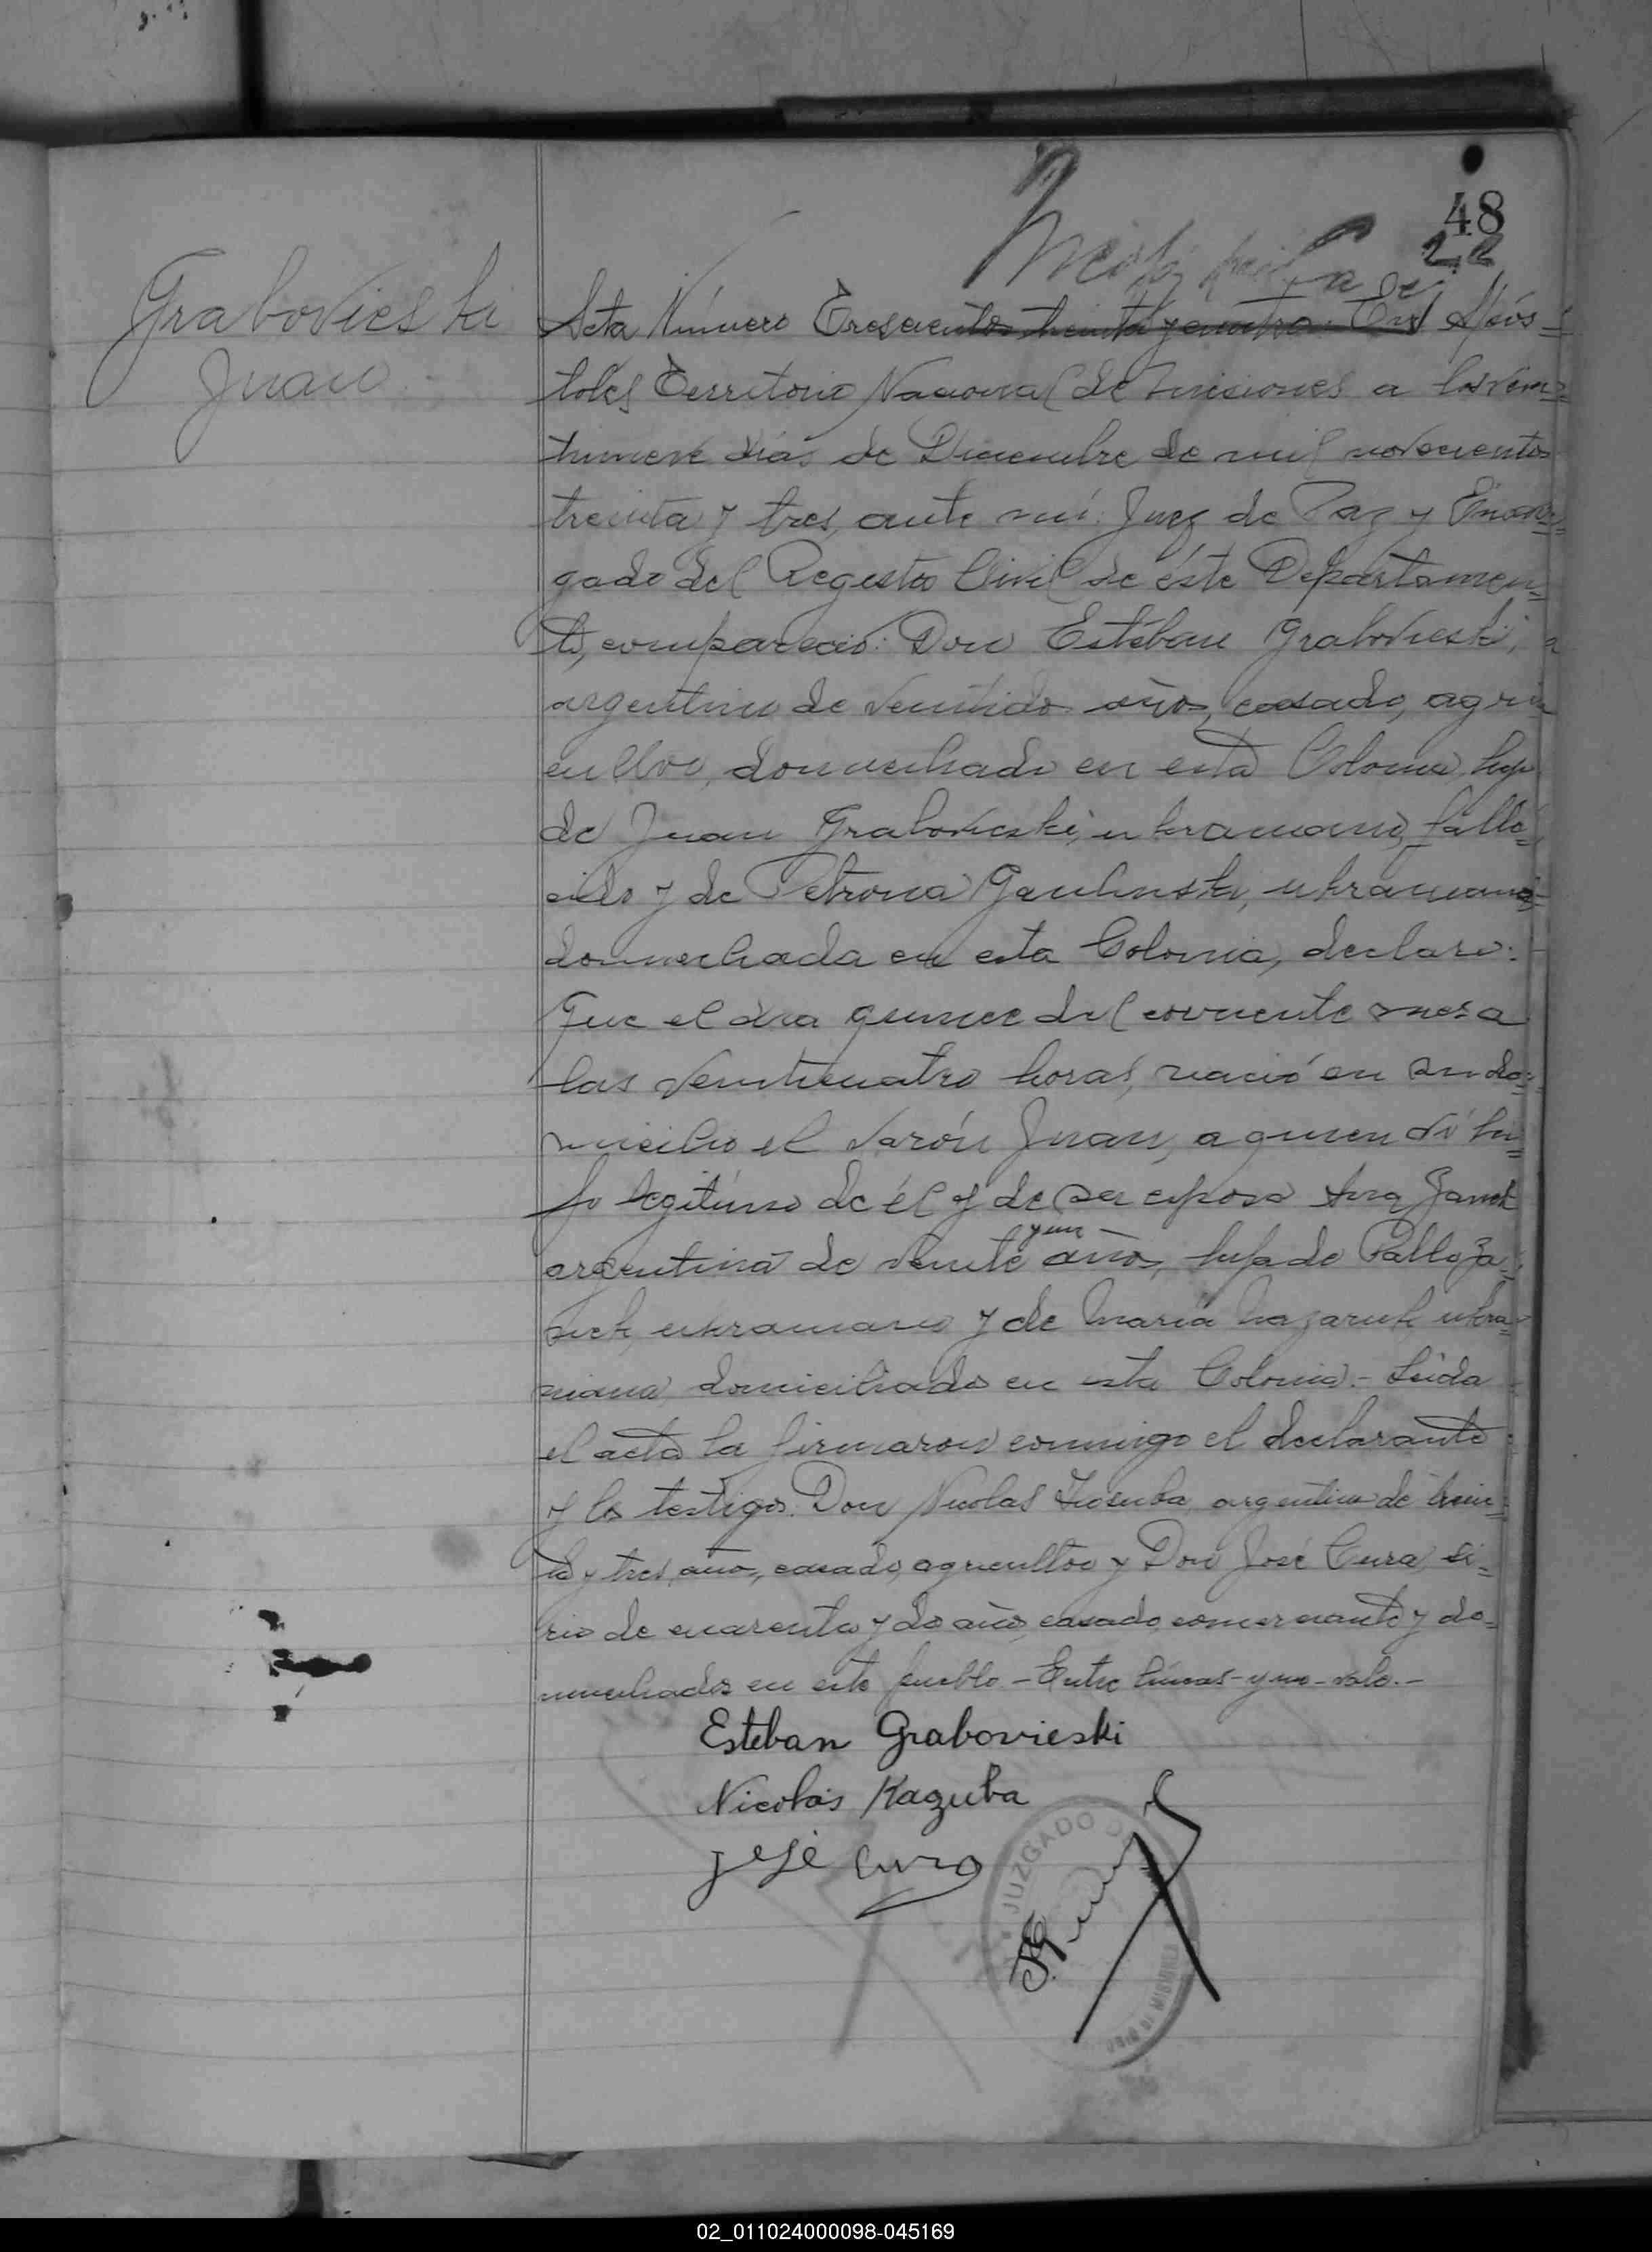 48
22
Grabovieski
Juan
Acta Número Trescientos treinta y cuatro: En Após-
toles Territorio Nacional de Misiones a los vein-
tinueve días de Diciembre de mil novecientos
treinta y tres, ante mí: Juez de Paz y Encar-
gado del Registro Civil de éste Departamen-
to, compareció: Don Estéban Grabovieski,
argentino de veintidos años, casado, agri-
cultor, domiciliado en esta Colonia, hijo
de Juan Grabovieski, ukraniano, falle-
cido y de Petrona ukraniana,
domiciliada en esta Colonia, declaro:
Que el día quince del corriente mes a
las veinticuatro horas, nació en su do-
micilio el varón Juan, a quien vi hi-
jo legitimo de él y de su esposa
y un
argentina de veinte años, hija de Pablo
ukraniano y de María ukra-
niana, domiciliados en esta Colonia.- Leida
el acta la firmaron conmigo el declarante
y los testigos: Don Nicolas argentino de trein-
ta y tres años, casado, agricultor y Don José Cura, si-
rio de cuarenta y dos años, casado, comerciante y do-
miciliados en este pueblo.- Entre líneas- y un- vale.-
Esteban Grabovieski
Nicolás Kazuba
José Cura
JUZGADO DE
MISIONES
02_011024000098-045169